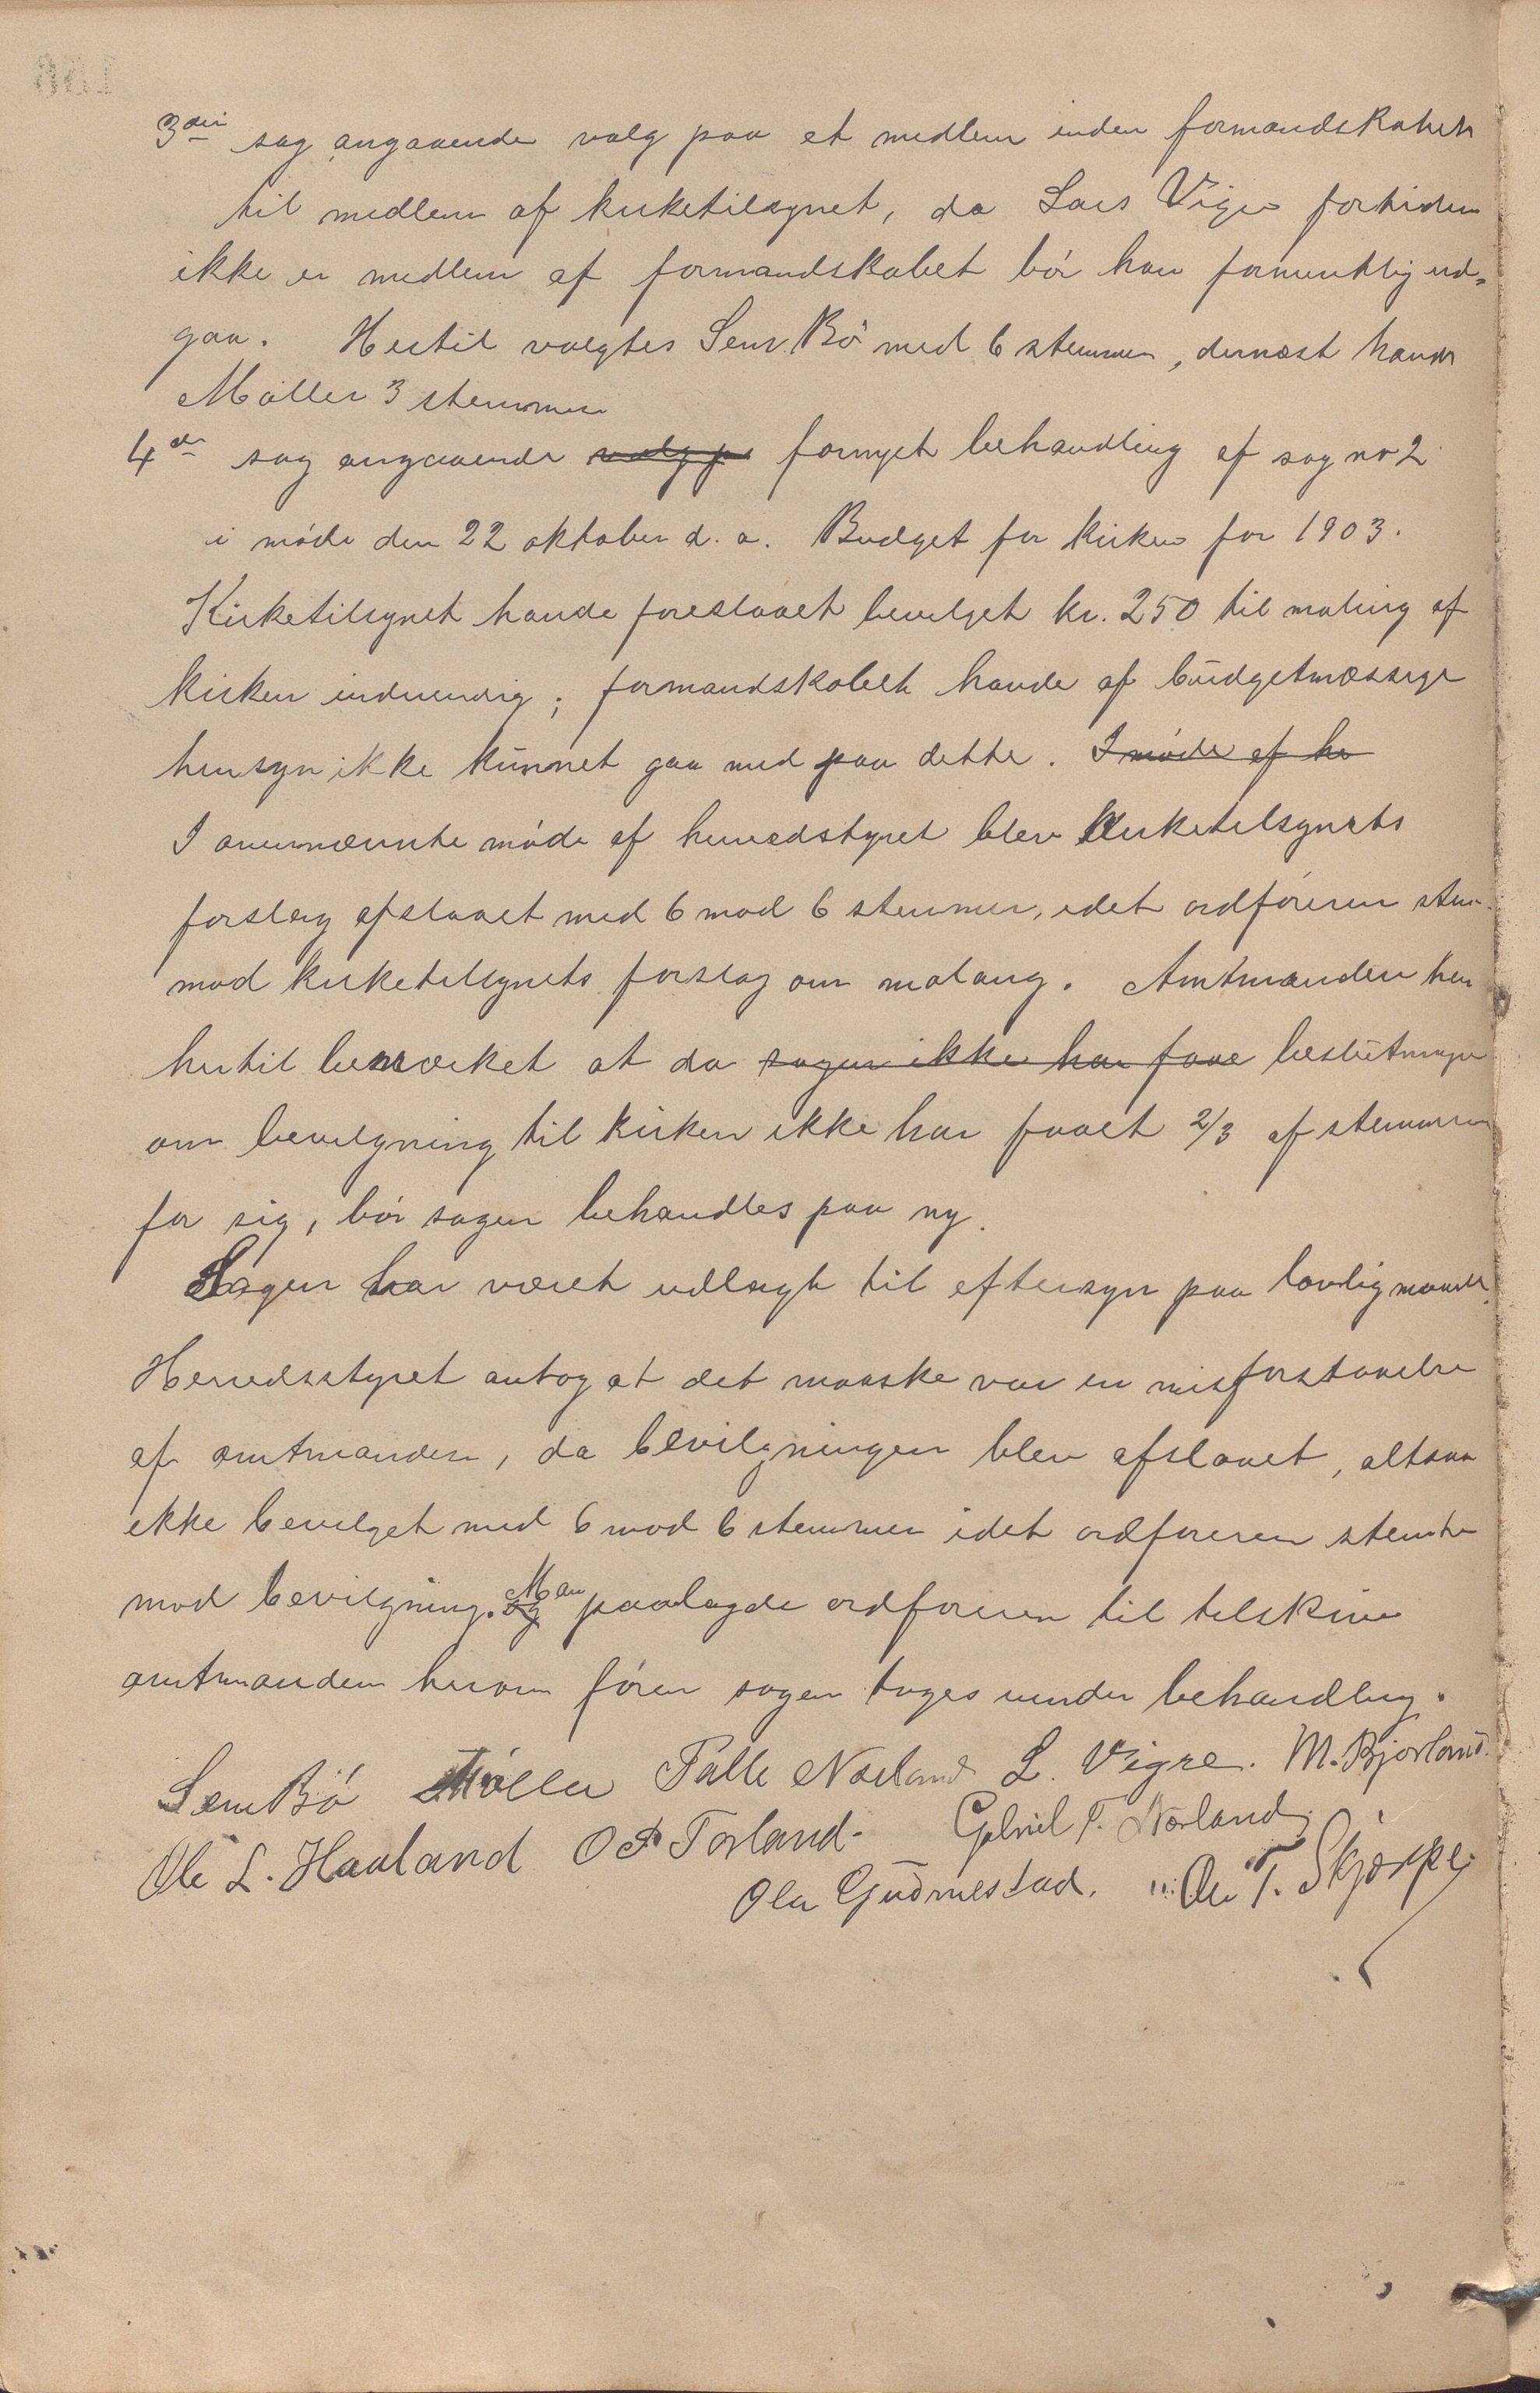 3die sag angaaende valg paa et medlem inden formandskabet
til medlem af kirketilsynet, da Lars Vigre fortiden
ikke er medlem af formandskabet bör han formentlig ud-
gaa. Hertil valgtes Sem Bö med 6 stemmer, dernæst
Möller 3 stemmer
4de sag angaaende valg p fornyet behandling af sag no 2
i möde den 22 oktober d. a. Budget for kirken for 1903.
Kirketilsynet havde foreslaaet bevilget kr. 250 til maling af
kirken indvendig; formandskabet havde af budgetmæssige
hensyn ikke kunnet gaa med paa dette. I möde af he
I ovennævnte möde af herredstyret blev kirketilsynets
forslag afslaaet med 6 mod 6 stemmer, idet ordföreren stem.
mod kirketilsynets forslag om maling. Amtmanden har
hertil bemærket at da sagen ikke har faae beslutningen
om bevilgning til kirken ikke har faaet 2/3 af stemmerne
for sig, bör sagen behandles paa ny.
Sagen har været udlagt til eftersyn paa lovlig maade.
Herredsstyret antog at det maaske var en misforstaaelse
af amtmanden, da bevilgningen blev afslaaet, altsaa
ikke bevilget med 6 mod 6 stemmer idet ordföreren stemte
mod bevilgning. og Man paalagde ordföreren til tilskrive
amtmanden herom förer sagen tages under behandling.
Sem Bö Möller Talle Narland L. Vigre. M. Bjorland.
Ole L. Haaland O P Torland. Gabriel T. Nærland.
Ola Gudmestad. Ole T. Skjærpe